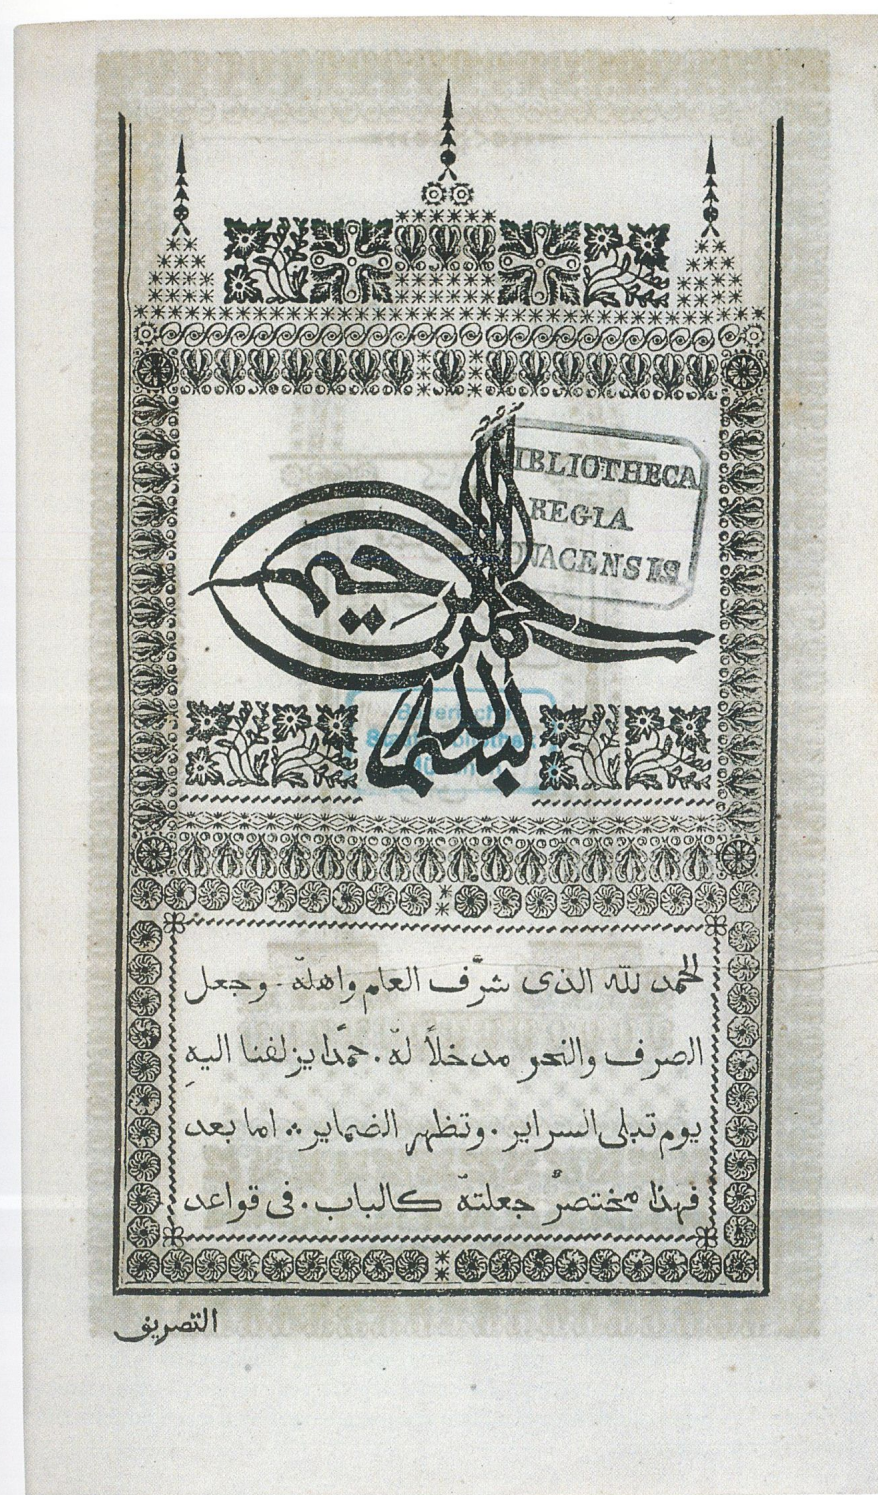 بسم الله الرحمن الرحيم
BIBLIOTHECA
REGIA
MONACENSIS
Bayerische
Staatsbibliothek
München
الحمد لله الذى شرَّف العلم واهلهُ . وجعل
الصرف والنحو مدخلاً لهُ . حمدًا يزلفنا اليهِ
يوم تبلى السراير . وتظهر الضماير ⁘ اما بعد
فهذا مختصرٌ جعلتهُ كالباب . فى قواعد
التصريف